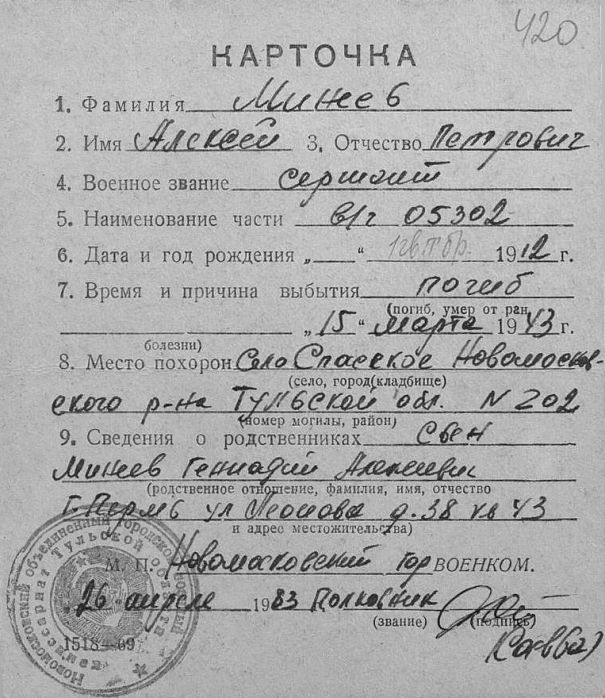 420
КАРТОЧКА
1. Фамилия Минеев
2. Имя Алексей 3. Отчество Петрович
4. Военное звание сержант
5. Наименование части в/ч 05302
6. Дата и год рождения „ “ 1 гв тбр. 1912 г.
7. Время и причина выбытия погиб
(погиб, умер от ран,
„15“ марта 1943 г.
болезни)
8. Место похорон Село Спасское Новомосков-
(село, город(кладбище)
ского р-на Тульской обл. N 202
(номер могилы, район)
9. Сведения о родственниках Сын
Минеев Геннадий Алексеевич
(родственное отношение, фамилия, имя, отчество
г. Пермь ул Леонова д. 38 кв 43
и адрес местожительства)
М. П. Новомосковский гор ВОЕНКОМ.
„26 апреля 1983 Полковник
(звание) (подпись)
1518—69